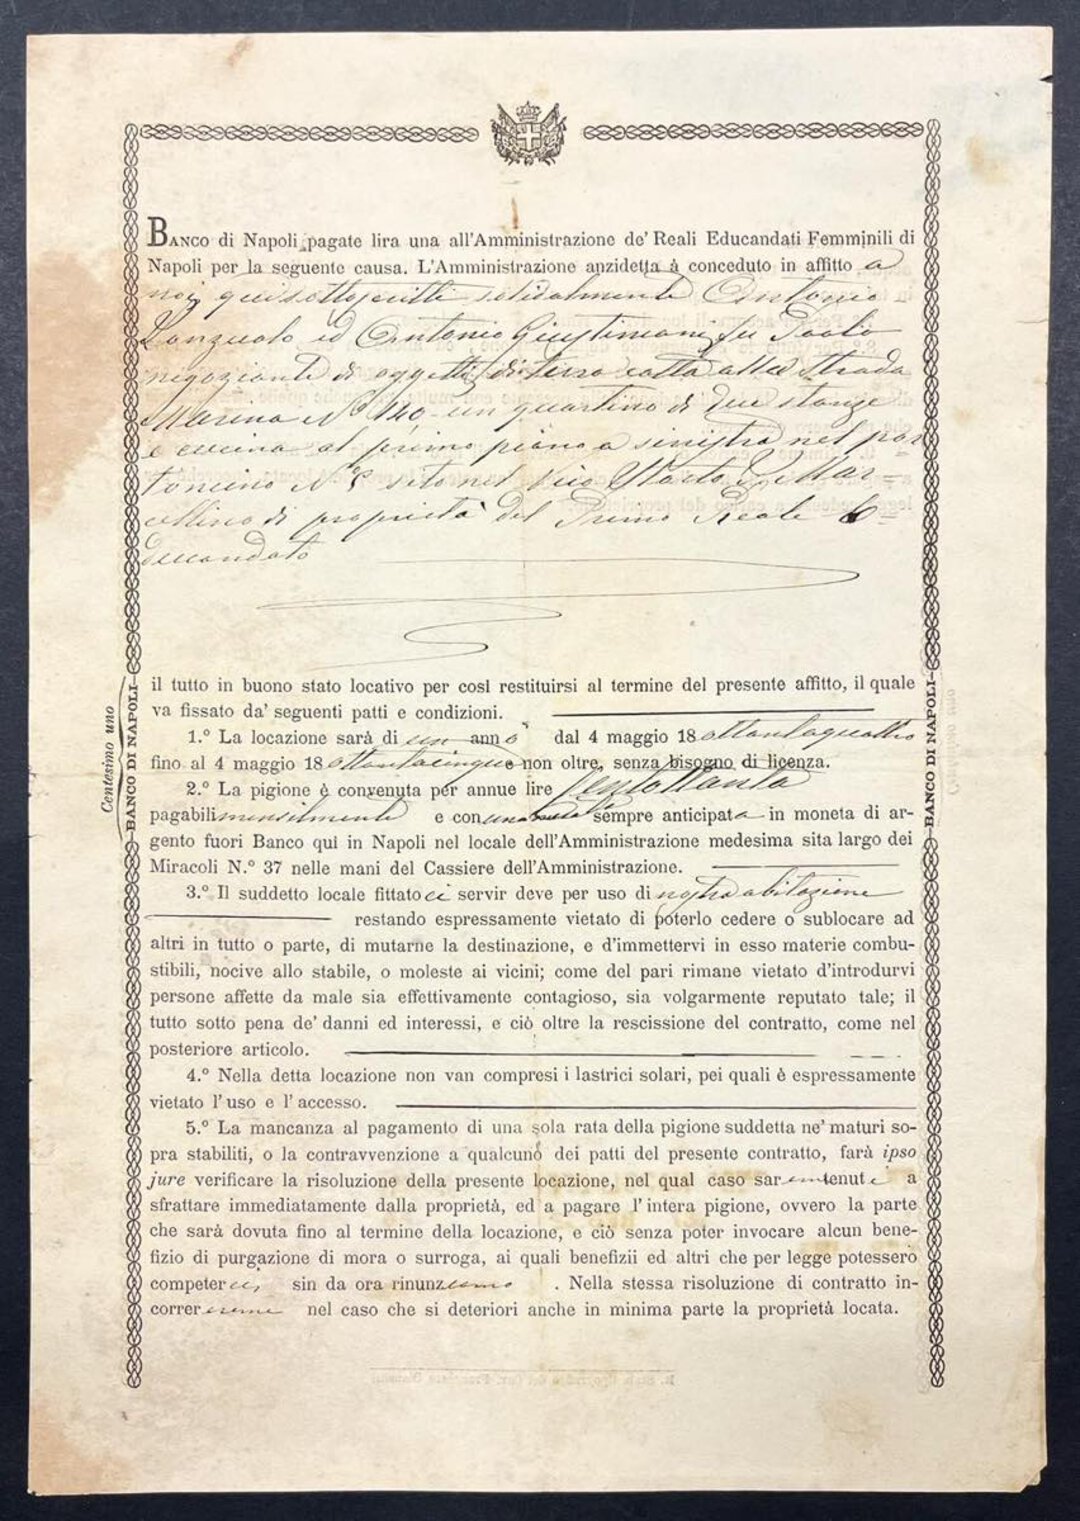 BANCO di Napoli pagate lira una all'Amministrazione de' Reali Educandati Femminili di
Napoli per la seguente causa. L'Amministrazione anzidetta à conceduto in affitto a
noi quisottoscritti solidalmente Antonio
ed Antonio Giustiniani fu Paolo
negoziante di oggetti di terra cotta alla Strada
Marina No 140 un quartino di due stanze
e cucina al primo piano a sinistra nel por
toncino N° sito nel Vico Mar=
cellino di proprietà del Primo Reale E=
ducandato
il tutto in buono stato locativo per così restituirsi al termine del presente affitto, il quale
va fissato da' seguenti patti e condizioni.
1.° La locazione sarà di un anno dal 4 maggio 18 ottantaquattro
fino al 4 maggio 18 ottantacinque non oltre, senza bisogno di licenza.
2.° La pigione è convenuta per annue lire Centottanta
pagabili mensilmente e con una sempre anticipata in moneta di ar-
gento fuori Banco qui in Napoli nel locale dell'Amministrazione medesima sita largo dei
Miracoli N.° 37 nelle mani del Cassiere dell'Amministrazione.
3.° Il suddetto locale fittato ci servir deve per uso di nostra abitazione
restando espressamente vietato di poterlo cedere o sublocare ad
altri in tutto o parte, di mutarne la destinazione, e d'immettervi in esso materie combu-
stibili, nocive allo stabile, o moleste ai vicini; come del pari rimane vietato d'introdurvi
persone affette da male sia effettivamente contagioso, sia volgarmente reputato tale; il
tutto sotto pena de' danni ed interessi, e ciò oltre la rescissione del contratto, come nel
posteriore articolo.
4.° Nella detta locazione non van compresi i lastrici solari, pei quali è espressamente
vietato l'uso e l'accesso.
5.° La mancanza al pagamento di una sola rata della pigione suddetta ne' maturi so-
pra stabiliti, o la contravvenzione a qualcuno dei patti del presente contratto, farà ipso
jure verificare la risoluzione della presente locazione, nel qual caso saremo tenuti a
sfrattare immediatamente dalla proprietà, ed a pagare l'intera pigione, ovvero la parte
che sarà dovuta fino al termine della locazione, e ciò senza poter invocare alcun bene-
fizio di purgazione di mora o surroga, ai quali benefizii ed altri che per legge potessero
competerci, sin da ora rinunziamo. Nella stessa risoluzione di contratto in-
correremo nel caso che si deteriori anche in minima parte la proprietà locata.
Centesimo uno
BANCO DI NAPOLI
BANCO DI NAPOLI